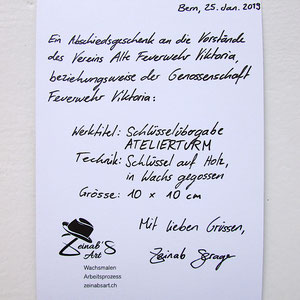 Bern, 25. Jan. 2019
Ein Abschiedsgeschenk an die Vorstände
des Vereins Alte Feuerwehr Viktoria,
beziehungsweise der Genossenschaft
Feuerwehr Viktoria:
Werktitel: Schlüsselübergabe
ATELIERTURM
Technik: Schlüssel auf Holz,
in Wachs gegossen
Grösse: 10 x 10 cm
Mit lieben Grüssen,
Zeinab
Zeinab'S
Art
Wachsmalen
Arbeitsprozess
zeinabsart.ch